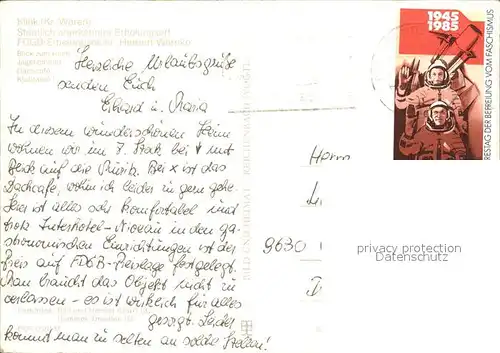 Klink (Kr. Waren)
Staatlich anerkannter Erholungsort
FDGB-Erholungsheim "Herbert Warnke"
Herzliche Urlaubsgrüße
senden Euch
Erhard u. Maria
In diesem wunderschönen Heim
wohnen wir im 7. Stock bei mit
Blick auf die Müritz. Bei x ist das
Dachcafe, wohin ich leider zu gern gehe.
Hier ist alles sehr komfortabel und
trotz Interhotel-Niveau in den ga-
stronomischen Einrichtungen ist der
Preis auf FDGB-Preislage festgelegt.
Man braucht das Objekt nicht zu
verlassen - es ist wirklich für alles
gesorgt. Leider
kommt man zu selten an solche Stellen!
1945
1985
RESTAG DER BEFREIUNG VOM FASCHISMUS
Herrn
9630
privacy protection
Datenschutz